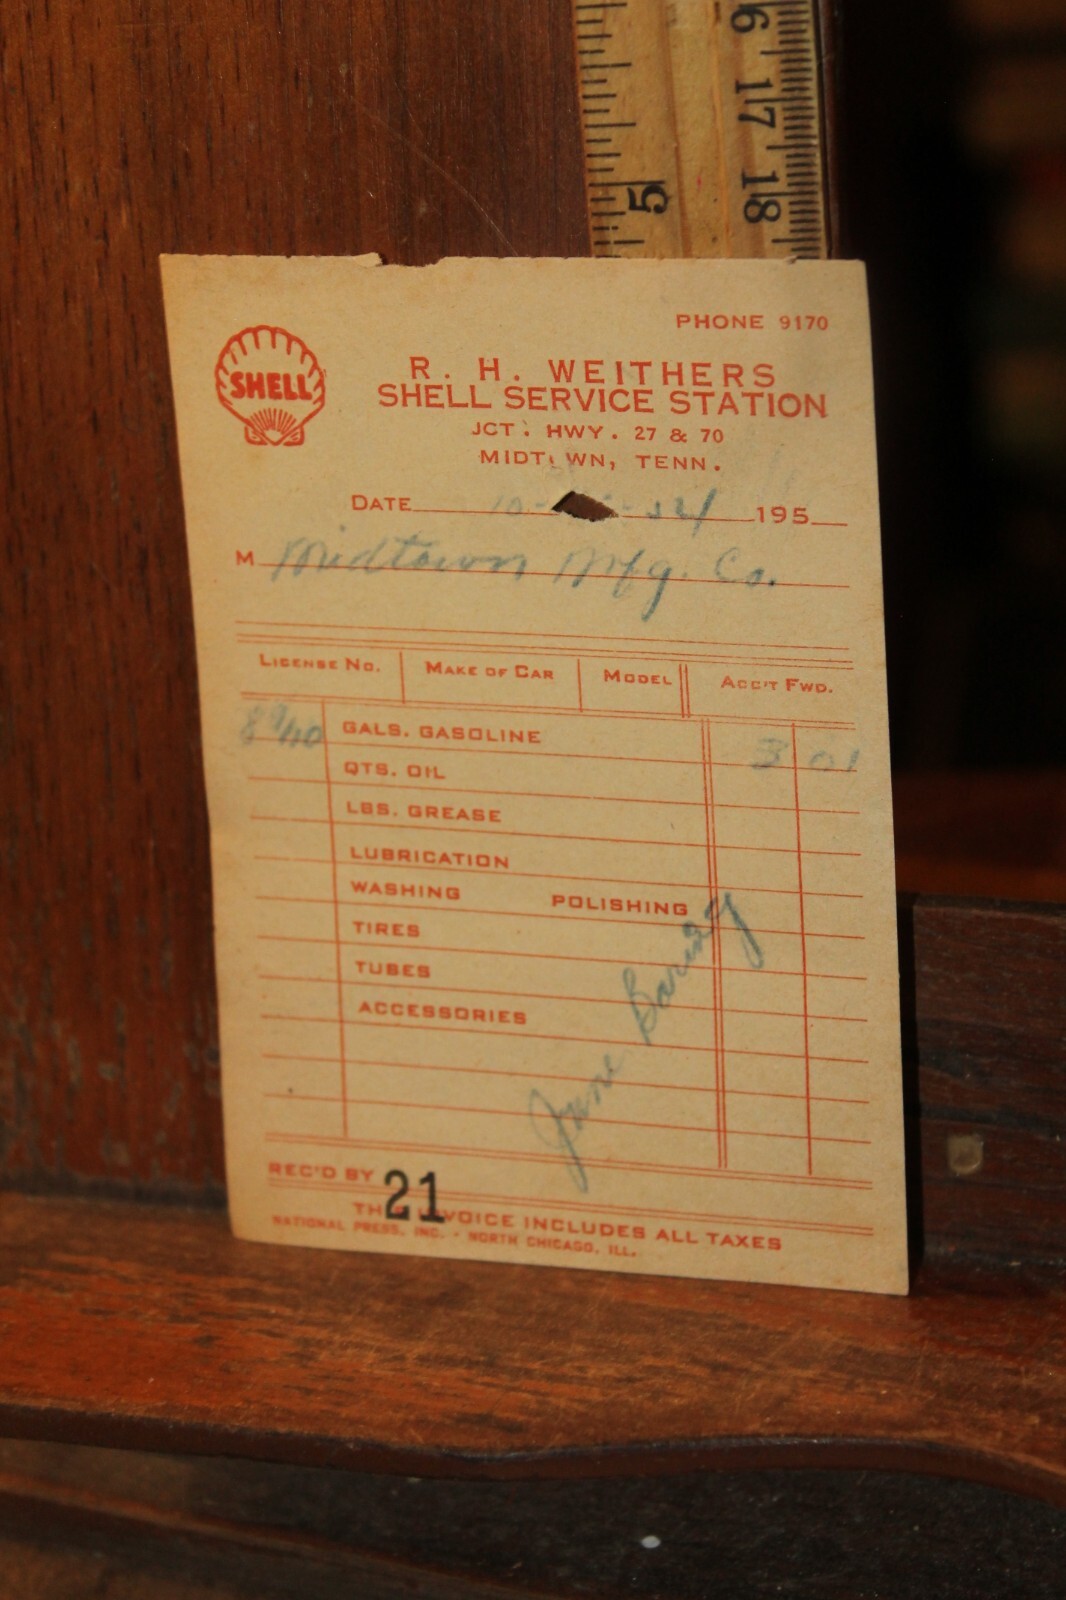 6
17
5
18
PHONE 9170
SHELL
R. H. WEITHERS
SHELL SERVICE STATION
JCT. HWY. 27 & 70
MIDT WN, TENN.
DATE 10- -54 195
M Midtown Mfg. Co.
LICENSE NO. MAKE OF CAR MODEL ACC'T FWD.
8 9/10 GALS. GASOLINE 3 01
QTS. OIL
LBS. GREASE
LUBRICATION
WASHING POLISHING
TIRES
TUBES
ACCESSORIES
June
REC'D BY 21
TH VOICE INCLUDES ALL TAXES
NATIONAL PRESS, INC. - NORTH CHICAGO, ILL.